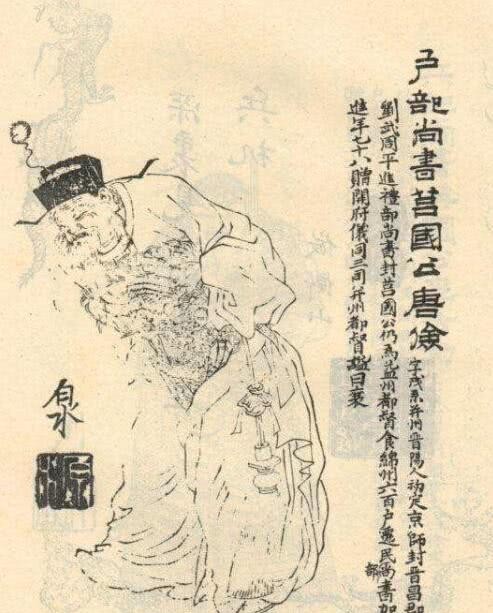 戶部尚書莒國公唐儉 字茂系并州晉陽人初定京師封晉昌郡
劉武周平進禮部尚書封莒國公仍為益州都督食綿州六百戶遷民部尚書加
進年七十八贈開府儀同三司并州都督謚曰襄